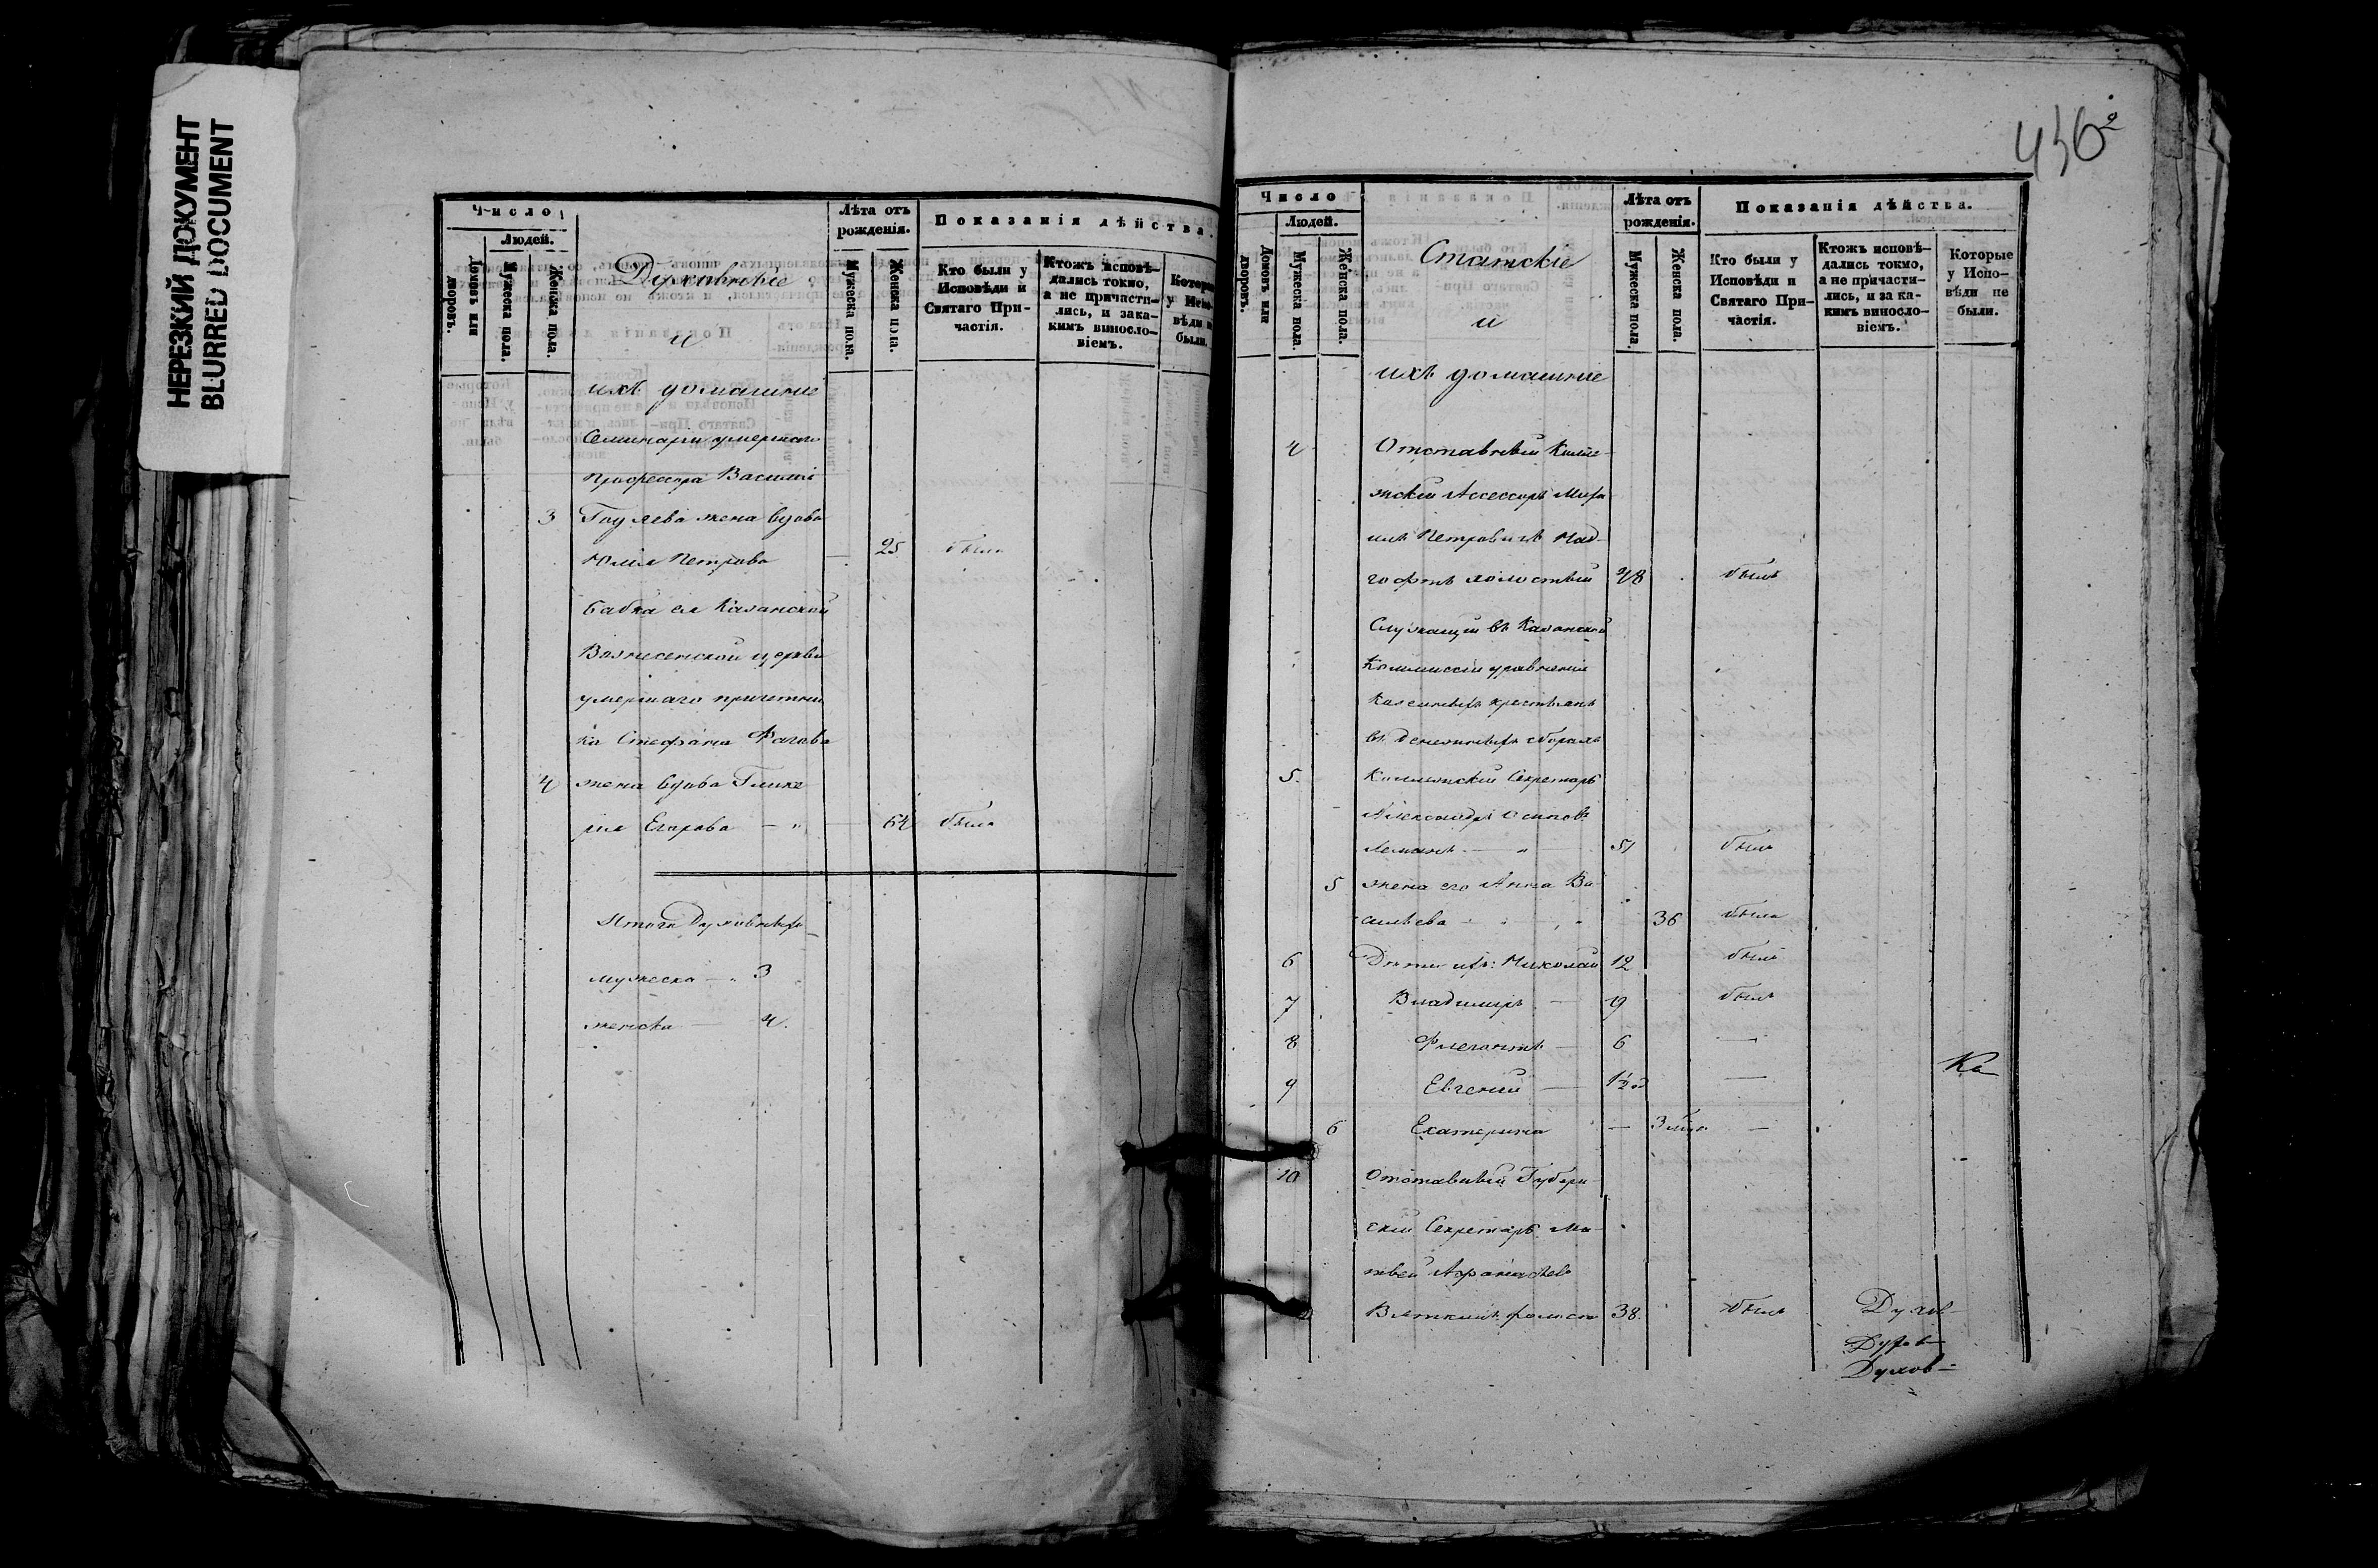 НЕРЕЗКИЙ ДОКУМЕНТ
BLURRED DOCUMENT
Число
Людей.
Домовъ или дворовъ.
Мужеска пола.
Женска пола.
Духовные
и
ихъ домашние
Лѣта отъ рожденія.
Мужеска пола.
Женска пола.
Показанія дѣйства.
Кто были у Исповѣди и Святаго Причастія.
Ктожъ исповѣдались токмо, а не причастились, и за какимъ винословіемъ.
Которые у Исповѣди не были.
Семинаріи умершаго
профессора Василія
3 жена вдова
Юлія Петрова — 25 была
бабка ея Казанской
Вознесенской церкви
умершаго причетни
ка Стефана
4 жена вдова Глике
рия Егорова — 64 была
Итого Духовныхъ
мужеска — 3
женска — 4.
436
Число
Людей.
Домовъ или дворовъ.
Мужеска пола.
Женска пола.
Статскіе
и
ихъ домашние
Лѣта отъ рожденія.
Мужеска пола.
Женска пола.
Показанія дѣйства.
Кто были у Исповѣди и Святаго Причастія.
Ктожъ исповѣдались токмо, а не причастились, и за какимъ винословіемъ.
Которые у Исповѣди не были.
4 Отставный Колле
жскій Ассессоръ Миха
илъ Петровичъ
холостый 48 былъ
Служащіи въ Казанской
Коммиссіи уравненія
казенныхъ крестьянъ
въ денежныхъ сборахъ
5. Коллежскій Секретарь
Александръ Осиповъ
Леманъ — 51 былъ
5 жена его Анна Ва
сильева 36 была
6 Дѣти ихъ: Николай 12 былъ
7 Владимиръ — 9 былъ
8 Флегонтъ — 6 —
9 Евгений — 1½ —
Ка
6 Екатерина — 3 —
10 Отставный Губерн
скій Секретарь Ма
твей Афанасьевъ
38. былъ
Духов
Духов
Духов